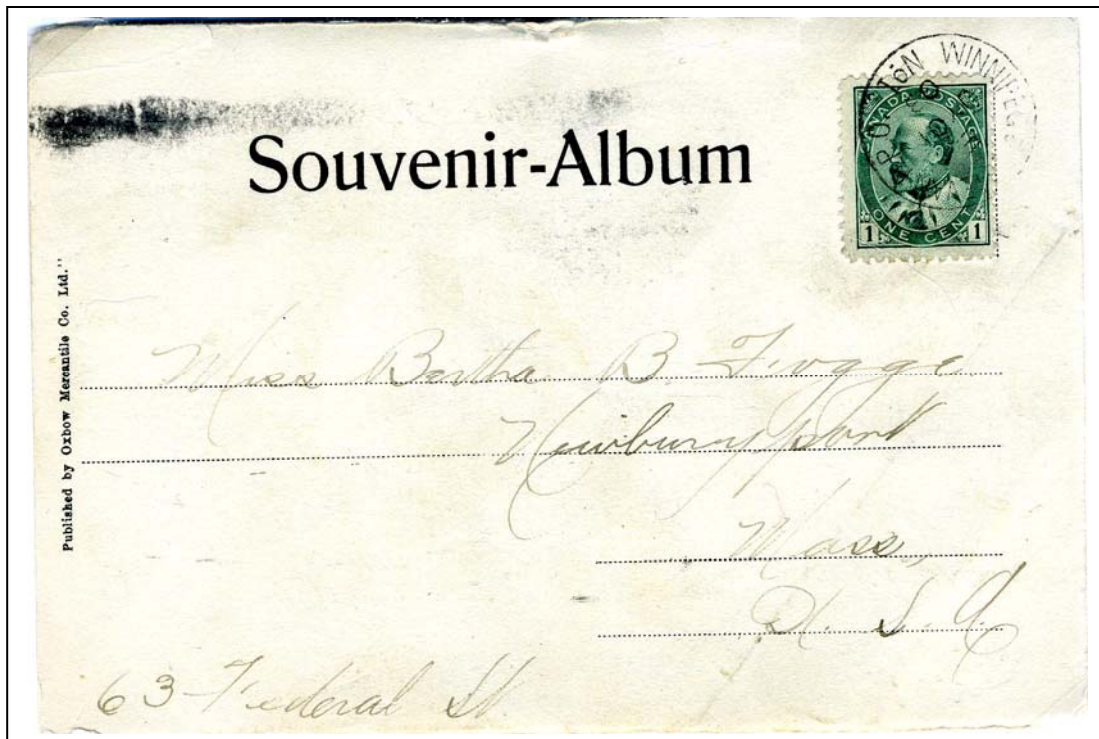 WINNIPEG
CANADA POSTAGE
ONE CENT
1 1
Souvenir-Album
Published by Oxbow Mercantile Co. Ltd."
Miss Bertha B. Frogge
Newburyport
Mass,
U. S. A.
63 Federal St.